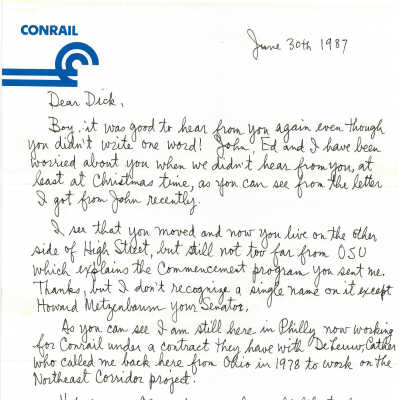 CONRAIL
June 30th 1987
Dear Dick,
Boy, it was good to hear from you again even though
you didn't write one word! John, Ed and I have been
worried about you when we didn't hear from you, at
least at Christmas time, as you can see from the letter
I got from John recently.
I see that you moved and now you live on the other
side of High Street, but still not too far from OSU
which explains the Commencement program you sent me.
Thanks, but I don't recognize a single name on it except
Howard Metzenbaum your Senator.
As you can see I am still here in Philly now working
for Conrail under a contract they have with DeLeuw, Cather
who called me back here from Ohio in 1978 to work on the
Northeast Corridor project!